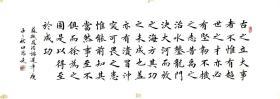 古之立大事
者不惟有超
世之才亦必
有堅韌不拔
之志昔禹之
治水鑿龍門
決大河而放
之海方其功
之未成也蓋
亦有潰冒衝
突可畏之患
惟能前知其
當然事至不
懼而徐為之
圖是以得至
於成功